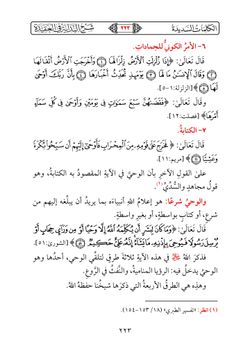 الكلمات السديدة
٢٢٣
شرح البداية في العقيدة
٦- الأمرُ الكونيُّ للجمادات.
قال تعالى: ﴿إِذَا زُلْزِلَتِ الْأَرْضُ زِلْزَالَهَا ۝ وَأَخْرَجَتِ الْأَرْضُ أَثْقَالَهَا
۝ وَقَالَ الْإِنسَانُ مَا لَهَا ۝ يَوْمَئِذٍ تُحَدِّثُ أَخْبَارَهَا ۝ بِأَنَّ رَبَّكَ أَوْحَىٰ
لَهَا ۝﴾ [الزلزلة: ١-٥].
قال تعالى: ﴿فَقَضَاهُنَّ سَبْعَ سَمَاوَاتٍ فِي يَوْمَيْنِ وَأَوْحَىٰ فِي كُلِّ سَمَاءٍ
أَمْرَهَا﴾ [فصلت: ١٢].
٧- الكتابةُ.
قال تعالى: ﴿فَخَرَجَ عَلَىٰ قَوْمِهِ مِنَ الْمِحْرَابِ فَأَوْحَىٰ إِلَيْهِمْ أَن سَبِّحُوا بُكْرَةً
وَعَشِيًّا ۝﴾ [مريم: ١١].
على القول الآخر بأن الوحيَ في الآية المقصودُ به الكتابةُ، وهو
قول مجاهدٍ والسُّدِّيِّ(١).
والوحيُ شرعًا: هو إعلامُ اللهِ أنبياءَه بما يريدُ أن يبلِّغه إليهم من
شرعٍ، أو كتابٍ بواسطةٍ، أو بغير واسطةٍ.
قال تعالى: ﴿وَمَا كَانَ لِبَشَرٍ أَن يُكَلِّمَهُ اللَّهُ إِلَّا وَحْيًا أَوْ مِن وَرَاءِ حِجَابٍ أَوْ
يُرْسِلَ رَسُولًا فَيُوحِيَ بِإِذْنِهِ مَا يَشَاءُ إِنَّهُ عَلِيٌّ حَكِيمٌ ۝﴾ [الشورى: ٥١].
فذكرَ اللهُ في هذه الآيةِ ثلاثةَ طرقٍ لتلقي الوحي، أحدُها وهو
الوحيُ يدخلُ فيه: الرؤيا المناميةُ، والنَّفْثُ في الرُّوعِ.
وهذِه هي الطرقُ الأربعةُ التي ذكرَها شيخُنا حفظَهُ اللهُ.
(١) انظر: «تفسير الطبري» (١٨/ ١٥٣-١٥٤).
٢٢٣